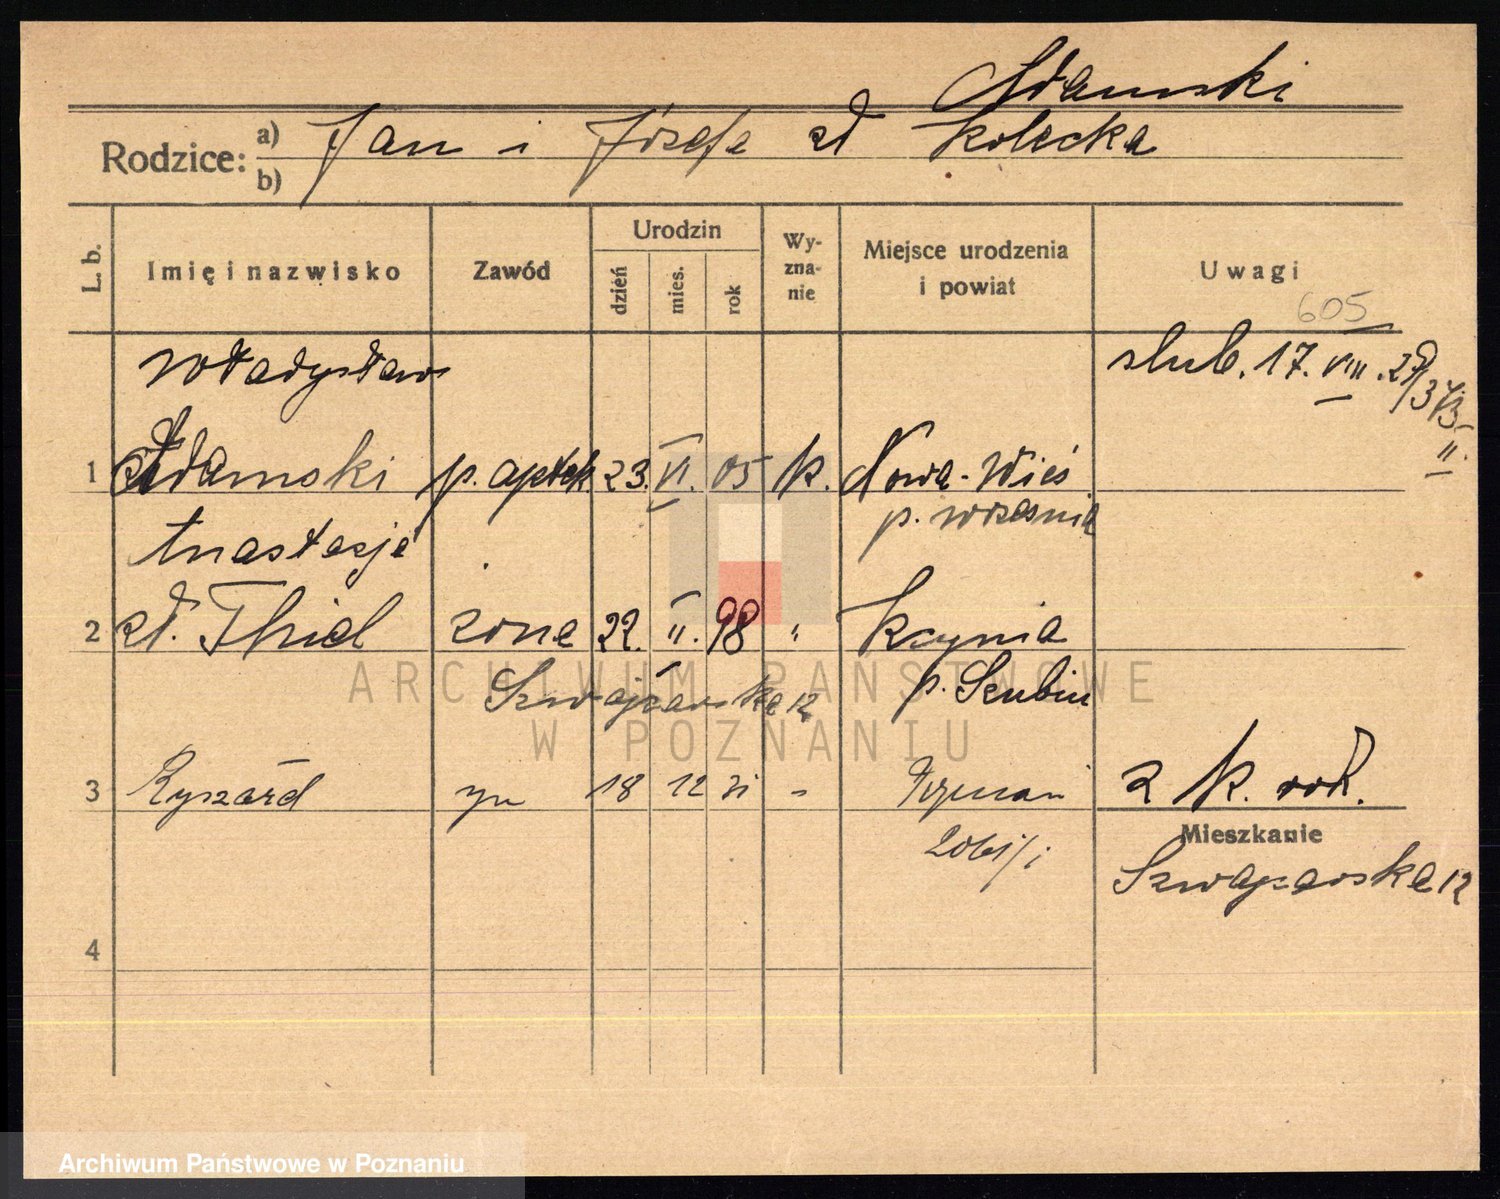 Adamski
Rodzice: a) b) Jan i Józefa zł Kolecka
L. b. Imię i nazwisko Zawód Urodzin dzień mies. rok Wy-zna-nie Miejsce urodzenia i powiat Uwagi
605
Władysław ślub. 17. VIII. 29
1 Adamski p. aptek 23. VI. 05 k. Nowa-Wieś
p. Września
Anastazja
2 zł. Thiel żona 22. II. 98 " Kcynia
Szwajcarska 12 p. Szubin
ARCHIWUM PAŃSTWOWE
W POZNANIU
3 Ryszard syn 18 12 31 - Poznań 2 k. rod.
Mieszkanie
Szwajcarska 12
4
Archiwum Państwowe w Poznaniu